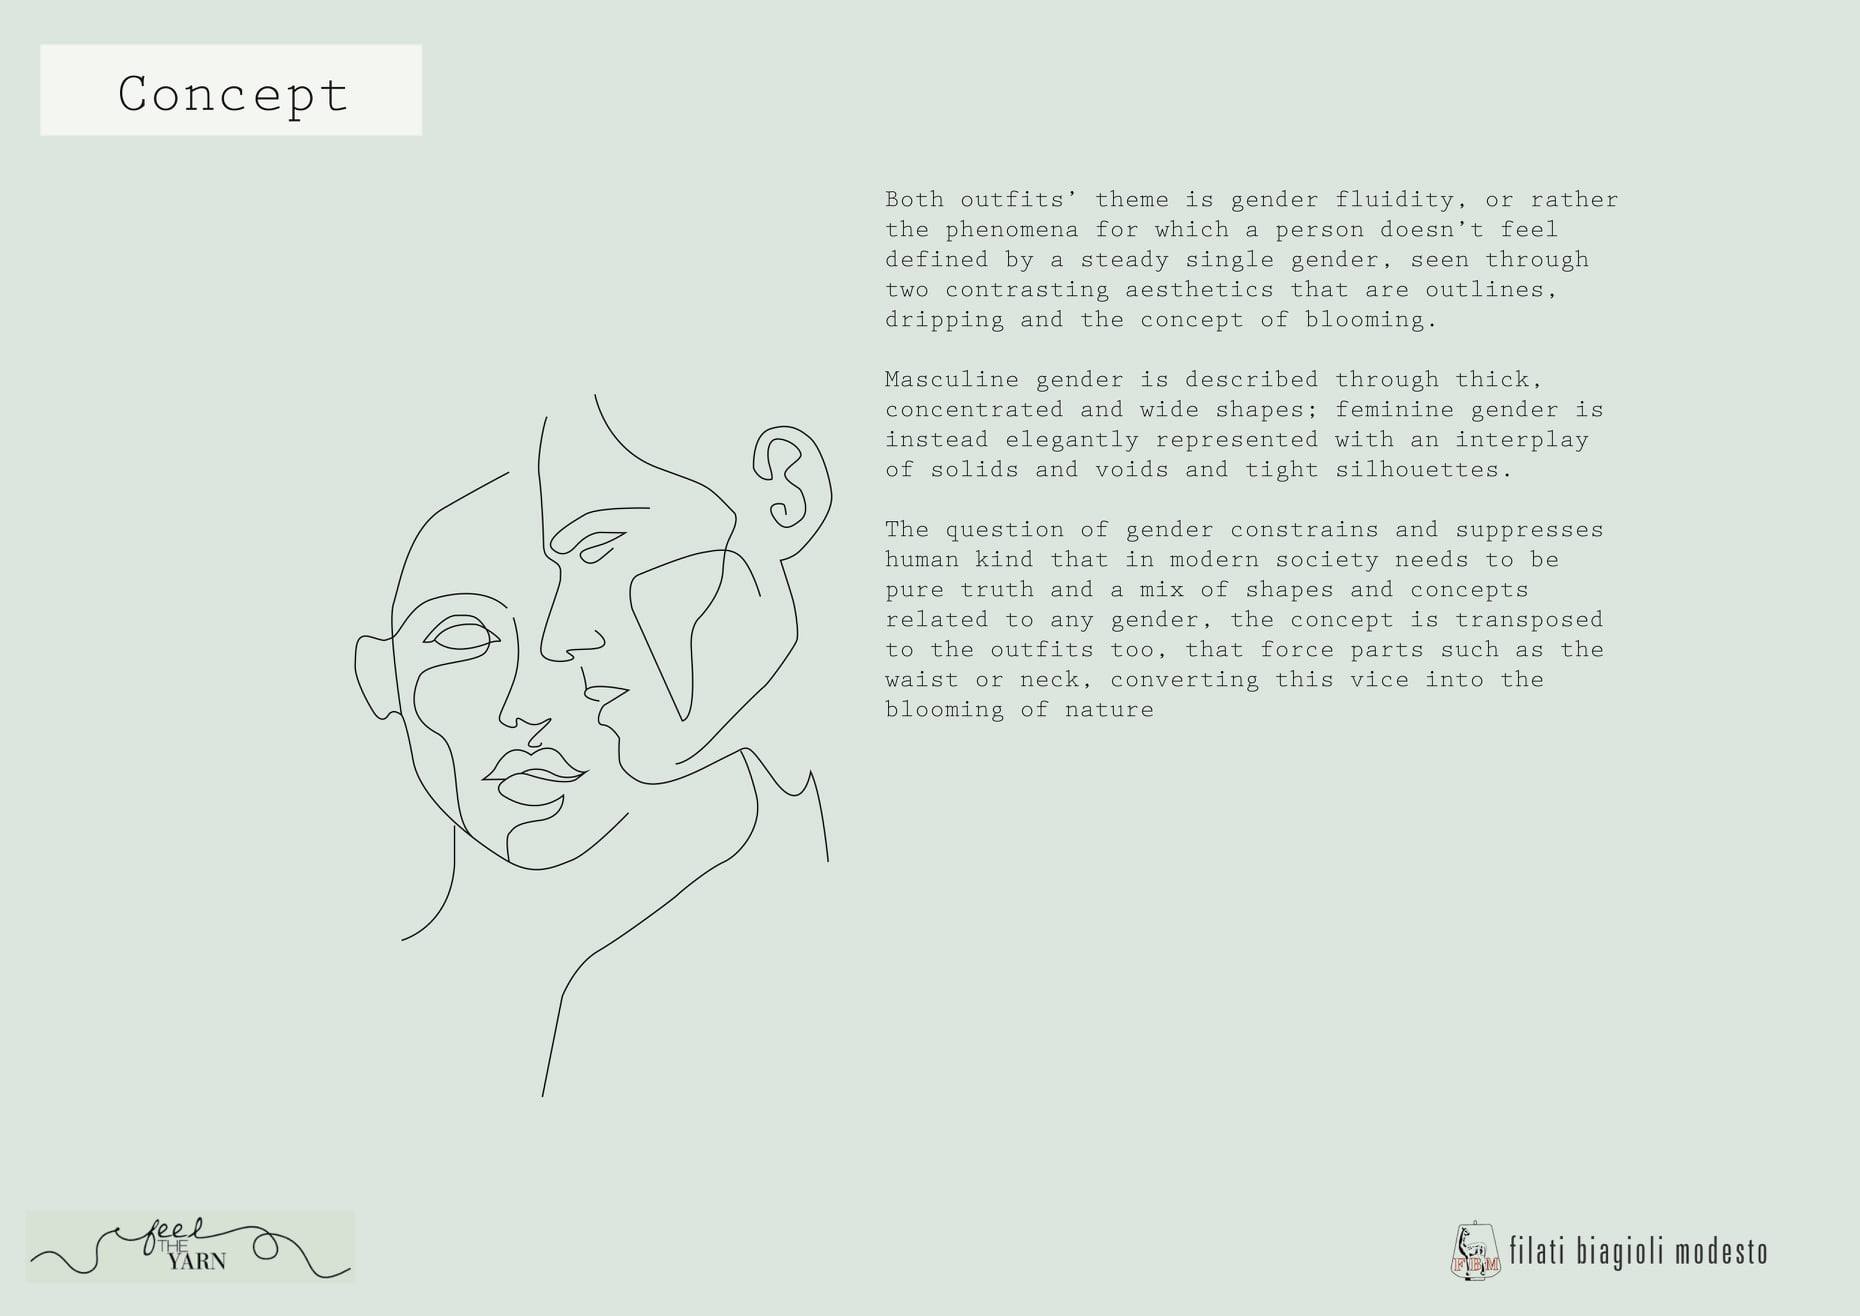 Concept
Both outfits’ theme is gender fluidity, or rather
the phenomena for which a person doesn’t feel
defined by a steady single gender, seen through
two contrasting aesthetics that are outlines,
dripping and the concept of blooming.
Masculine gender is described through thick,
concentrated and wide shapes; feminine gender is
instead elegantly represented with an interplay
of solids and voids and tight silhouettes.
The question of gender constrains and suppresses
human kind that in modern society needs to be
pure truth and a mix of shapes and concepts
related to any gender, the concept is transposed
to the outfits too, that force parts such as the
waist or neck, converting this vice into the
blooming of nature
feel
THE
YARN
FBM
filati biagioli modesto